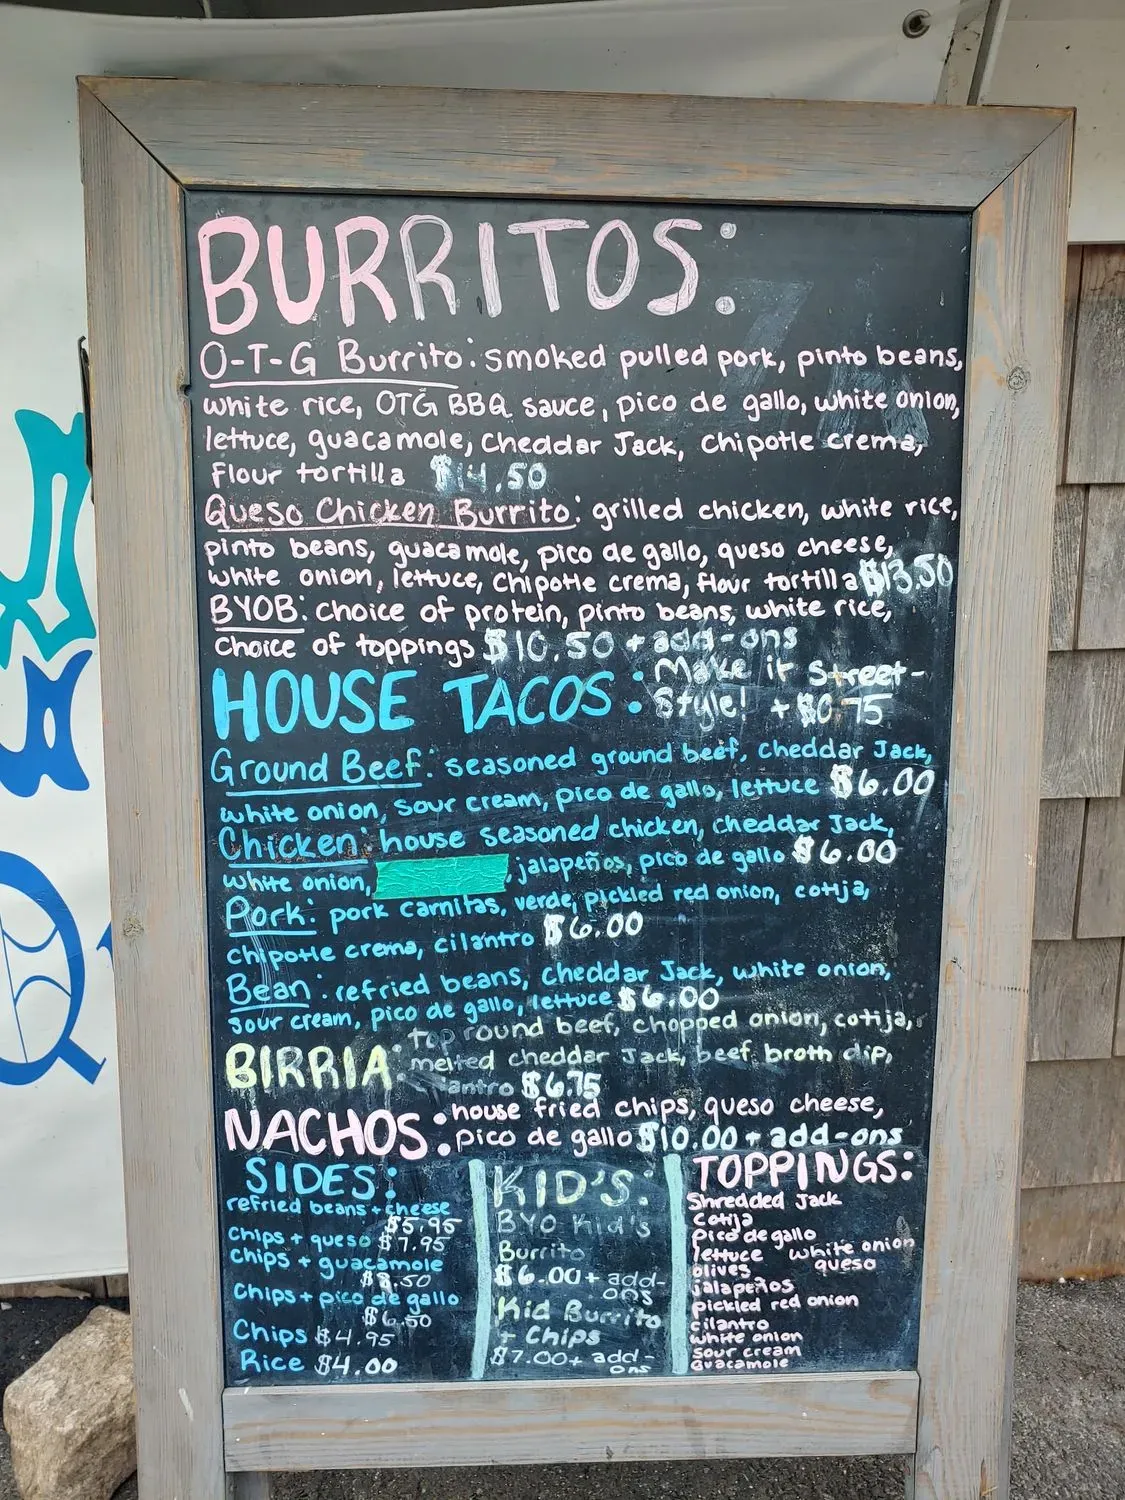 BURRITOS:
O-T-G Burrito: smoked pulled pork, pinto beans,
white rice, OTG BBQ sauce, pico de gallo, white onion,
lettuce, guacamole, cheddar Jack, chipotle crema,
flour tortilla $14.50
Queso Chicken Burrito: grilled chicken, white rice,
pinto beans, guacamole, pico de gallo, queso cheese,
white onion, lettuce, chipotle crema, flour tortilla $13.50
BYOB: choice of protein, pinto beans, white rice,
choice of toppings $10.50 + add-ons
HOUSE TACOS: Make it Street-
Style! + $0.75
Ground Beef: seasoned ground beef, cheddar Jack,
white onion, sour cream, pico de gallo, lettuce $6.00
Chicken: house seasoned chicken, cheddar Jack,
white onion, , jalapeños, pico de gallo $6.00
Pork: pork carnitas, verde, pickled red onion, cotija,
chipotle crema, cilantro $6.00
Bean: refried beans, cheddar Jack, white onion,
sour cream, pico de gallo, lettuce $6.00
BIRRIA: top round beef, chopped onion, cotija,
melted cheddar Jack, beef broth dip,
$6.75
NACHOS: house fried chips, queso cheese,
pico de gallo $10.00 + add-ons
SIDES:
refried beans + cheese
$5.95
Chips + queso $7.95
Chips + guacamole
$8.50
Chips + pico de gallo
$6.50
Chips $4.95
Rice $4.00
KID'S:
BYO Kid's
Burrito
$6.00 + add-
ons
Kid Burrito
+ Chips
$7.00 + add-
ons
TOPPINGS:
Shredded Jack
Cotija
Pico de gallo
lettuce white onion
olives queso
jalapeños
pickled red onion
cilantro
white onion
sour cream
guacamole